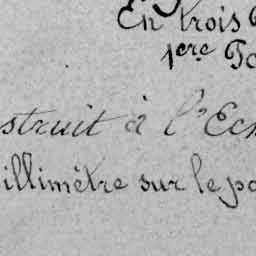 En trois
1ère
struit à l'Ech
illimètre sur le po